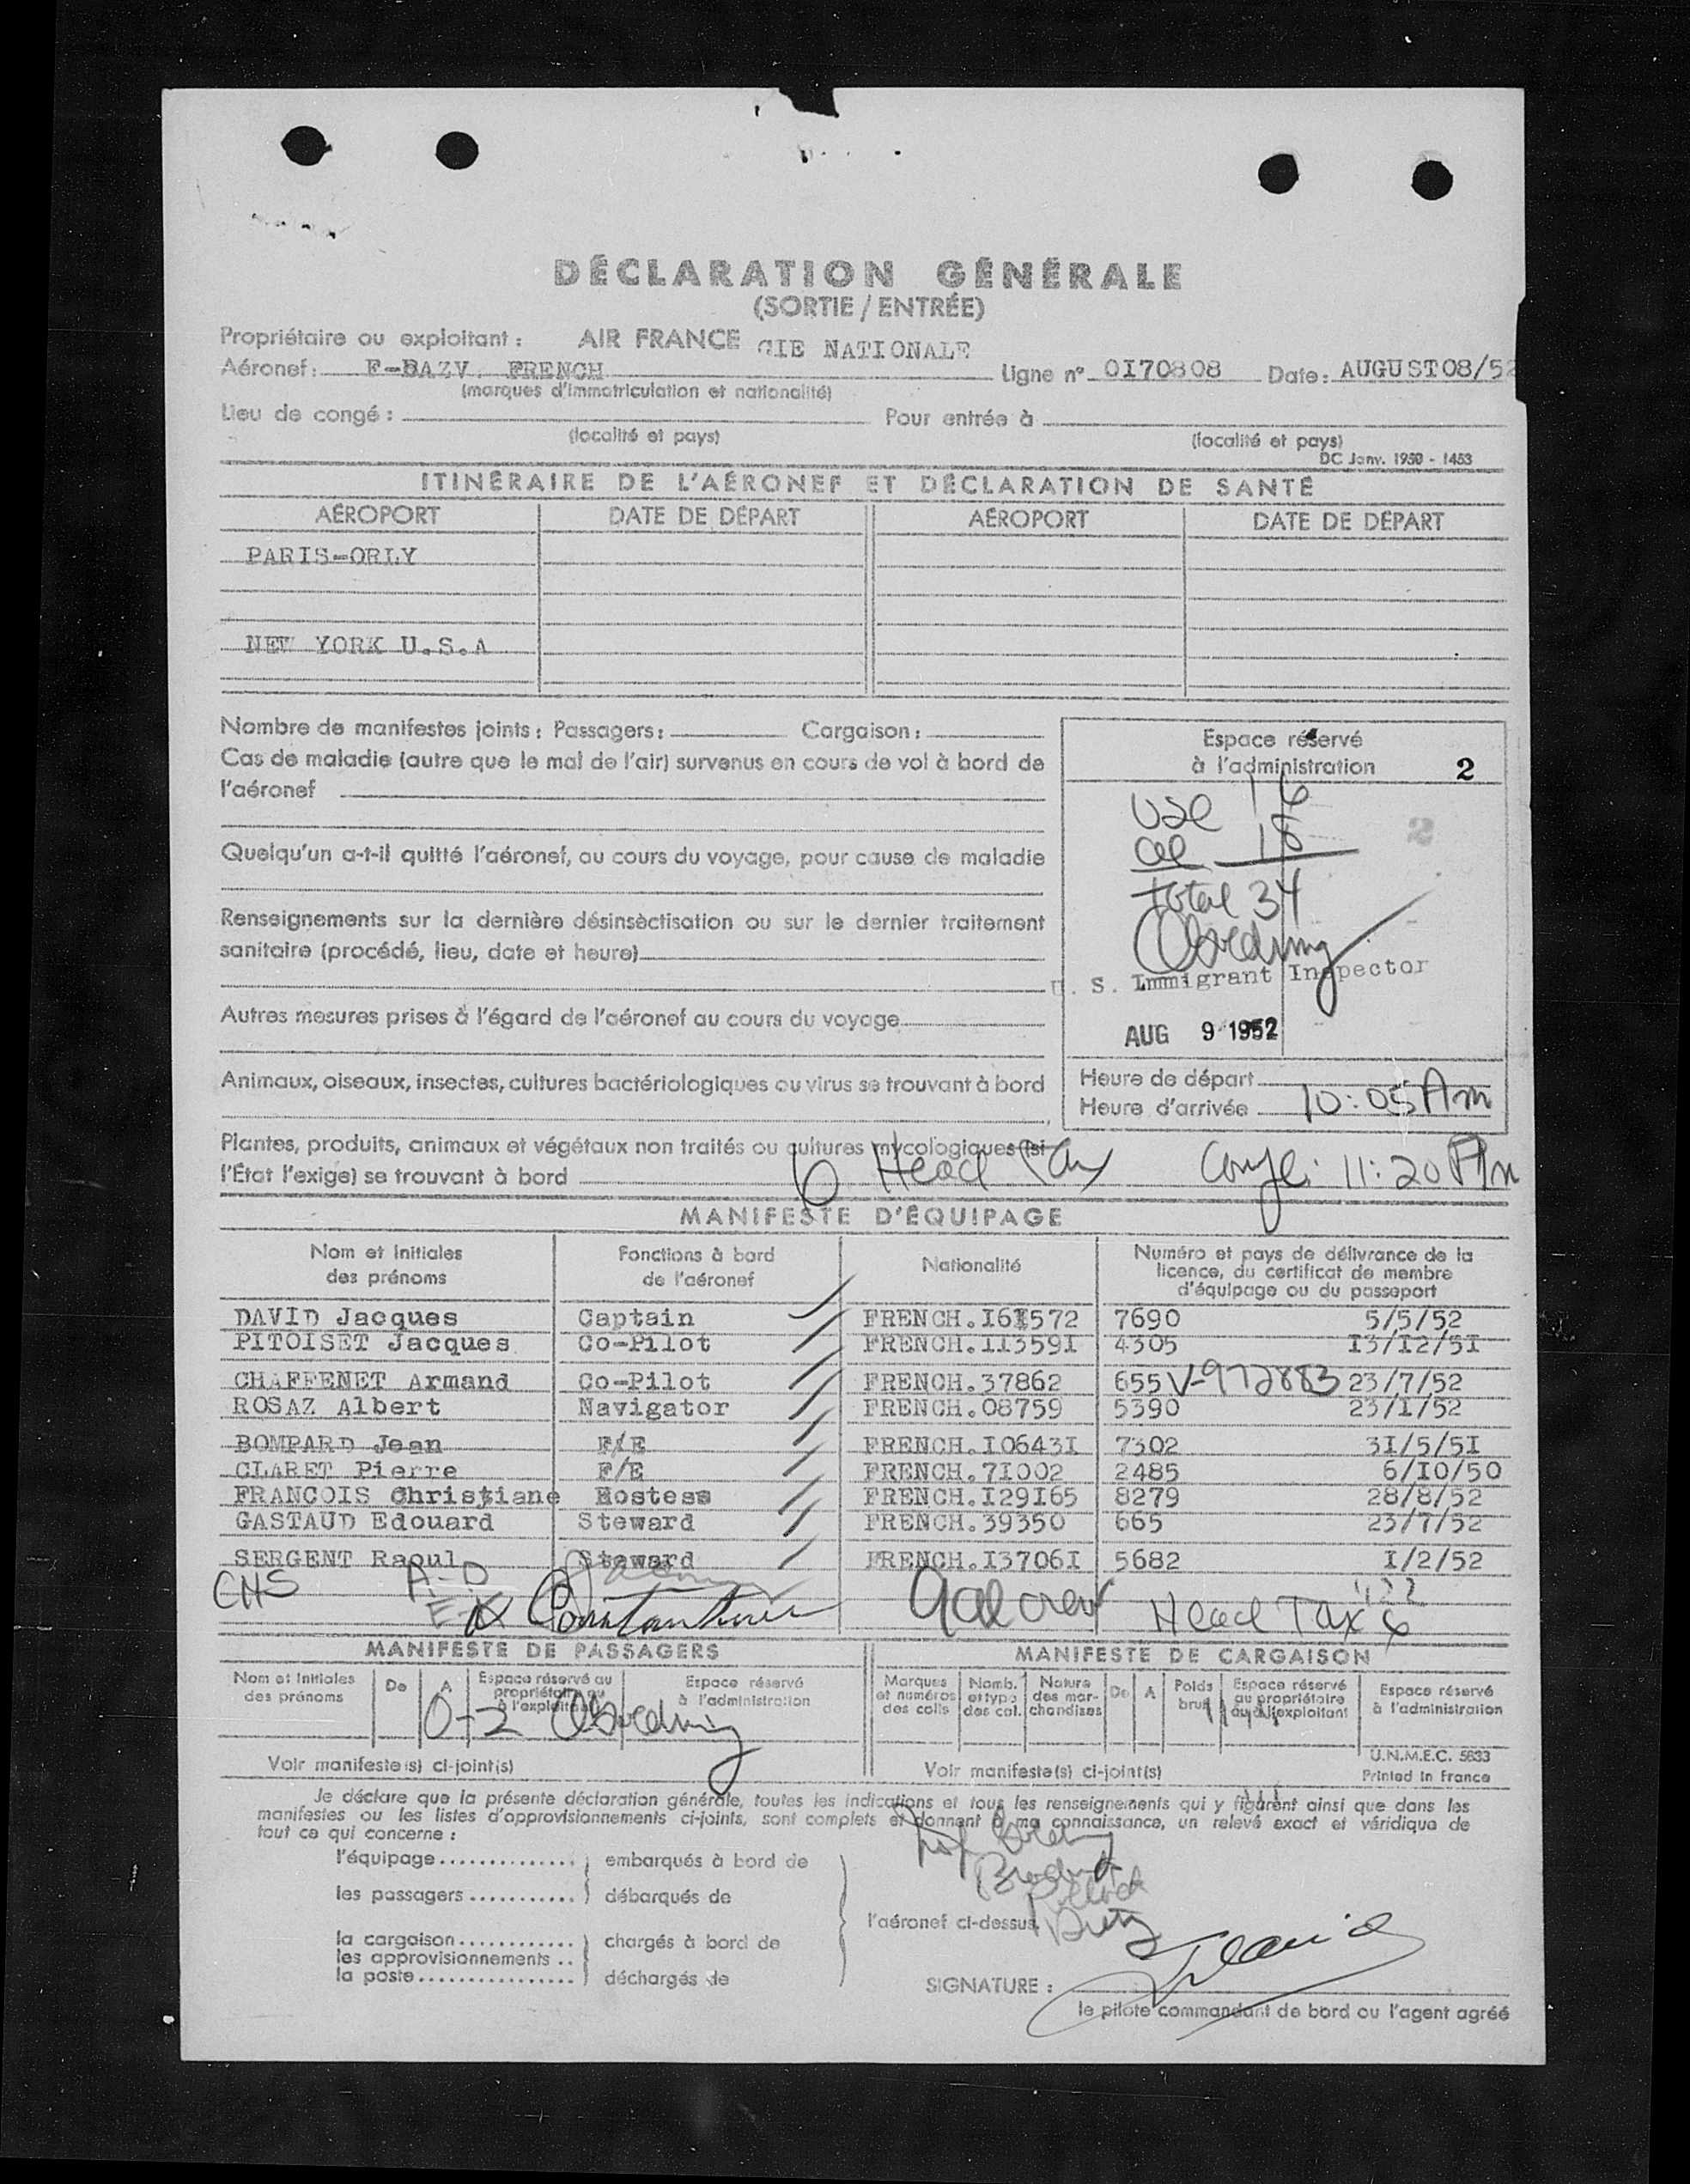 DÉCLARATION GÉNÉRALE
(SORTIE / ENTRÉE)
Propriétaire ou exploitant : AIR FRANCE CIE NATIONALE
Aéronef : F-BAZV. FRENCH Ligne n° 0I70808 Date : AUGUST08/52
(marques d'immatriculation et nationalité)
Lieu de congé : Pour entrée à
(localité et pays) (localité et pays)
DC Janv. 1950 - 1453
ITINÉRAIRE DE L'AÉRONEF ET DÉCLARATION DE SANTÉ
AÉROPORT DATE DE DÉPART AÉROPORT DATE DE DÉPART
PARIS-ORLY
NEW YORK U.S.A
Nombre de manifestes joints : Passagers : Cargaison :
Cas de maladie (autre que le mal de l'air) survenus en cours de vol à bord de
l'aéronef
Quelqu'un a-t-il quitté l'aéronef, au cours du voyage, pour cause de maladie
Renseignements sur la dernière désinsèctisation ou sur le dernier traitement
sanitaire (procédé, lieu, date et heure)
Autres mesures prises à l'égard de l'aéronef au cours du voyage
Animaux, oiseaux, insectes, cultures bactériologiques ou virus se trouvant à bord
Espace réservé
à l'administration 2
USC 16
al 18
Total 34
U. S. Immigrant Inspector
AUG 9 1952
Heure de départ
Heure d'arrivée 10:05 Am
Plantes, produits, animaux et végétaux non traités ou cultures mycologiques (si
l'État l'exige) se trouvant à bord 6 Head Tax 11:20 Am
MANIFESTE D'ÉQUIPAGE
Nom et Initiales des prénoms Fonctions à bord de l'aéronef Nationalité Numéro et pays de délivrance de la licence, du certificat de membre d'équipage ou du passeport
DAVID Jacques Captain FRENCH.I61572 7690 5/5/52
PITOISET Jacques Co-Pilot FRENCH.113591 4305 I3/I2/5I
CHAFFENET Armand Co-Pilot FRENCH.37862 655 V-972883 23/7/52
ROSAZ Albert Navigator FRENCH.08759 5390 23/I/52
BOMPARD Jean F/E FRENCH.I0643I 7302 3I/5/5I
CLARET Pierre F/E FRENCH.7I002 2485 6/I0/50
FRANCOIS Christiane Hostess FRENCH.I29I65 8279 28/8/52
GASTAUD Edouard Steward FRENCH.39350 665 23/7/52
SERGENT Raoul Steward FRENCH.I3706I 5682 I/2/52
CHS A-D 9 al crew Head Tax 6
MANIFESTE DE PASSAGERS MANIFESTE DE CARGAISON
Nom et Initiales des prénoms De A Espace réservé au propriétaire ou à l'exploitant Espace réservé à l'administration
Marques et numéros des colis Nomb. et type des col. Nature des marchandises De A Poids brut Espace réservé au propriétaire ou à l'exploitant Espace réservé à l'administration
0-2
Voir manifeste(s) ci-joint(s) Voir manifeste(s) ci-joint(s)
U.N.M.E.C. 5833
Printed in France
Je déclare que la présente déclaration générale, toutes les indications et tous les renseignements qui y figurent ainsi que dans les
manifestes ou les listes d'approvisionnements ci-joints, sont complets et donnent à ma connaissance, un relevé exact et véridique de
tout ce qui concerne :
l'équipage embarqués à bord de
les passagers débarqués de
l'aéronef ci-dessus.
la cargaison chargés à bord de
les approvisionnements
la poste déchargés de
SIGNATURE :
le pilote commandant de bord ou l'agent agréé